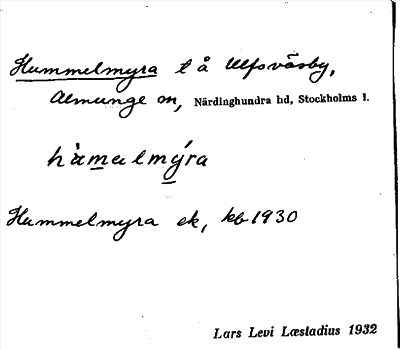 Hummelmyra t å Ulfsväsby,
Almunge sn, Närdinghundra hd, Stockholms l.
hà̀malmýra
Hummelmyra ek, kb 1930
Lars Levi Læstadius 1932